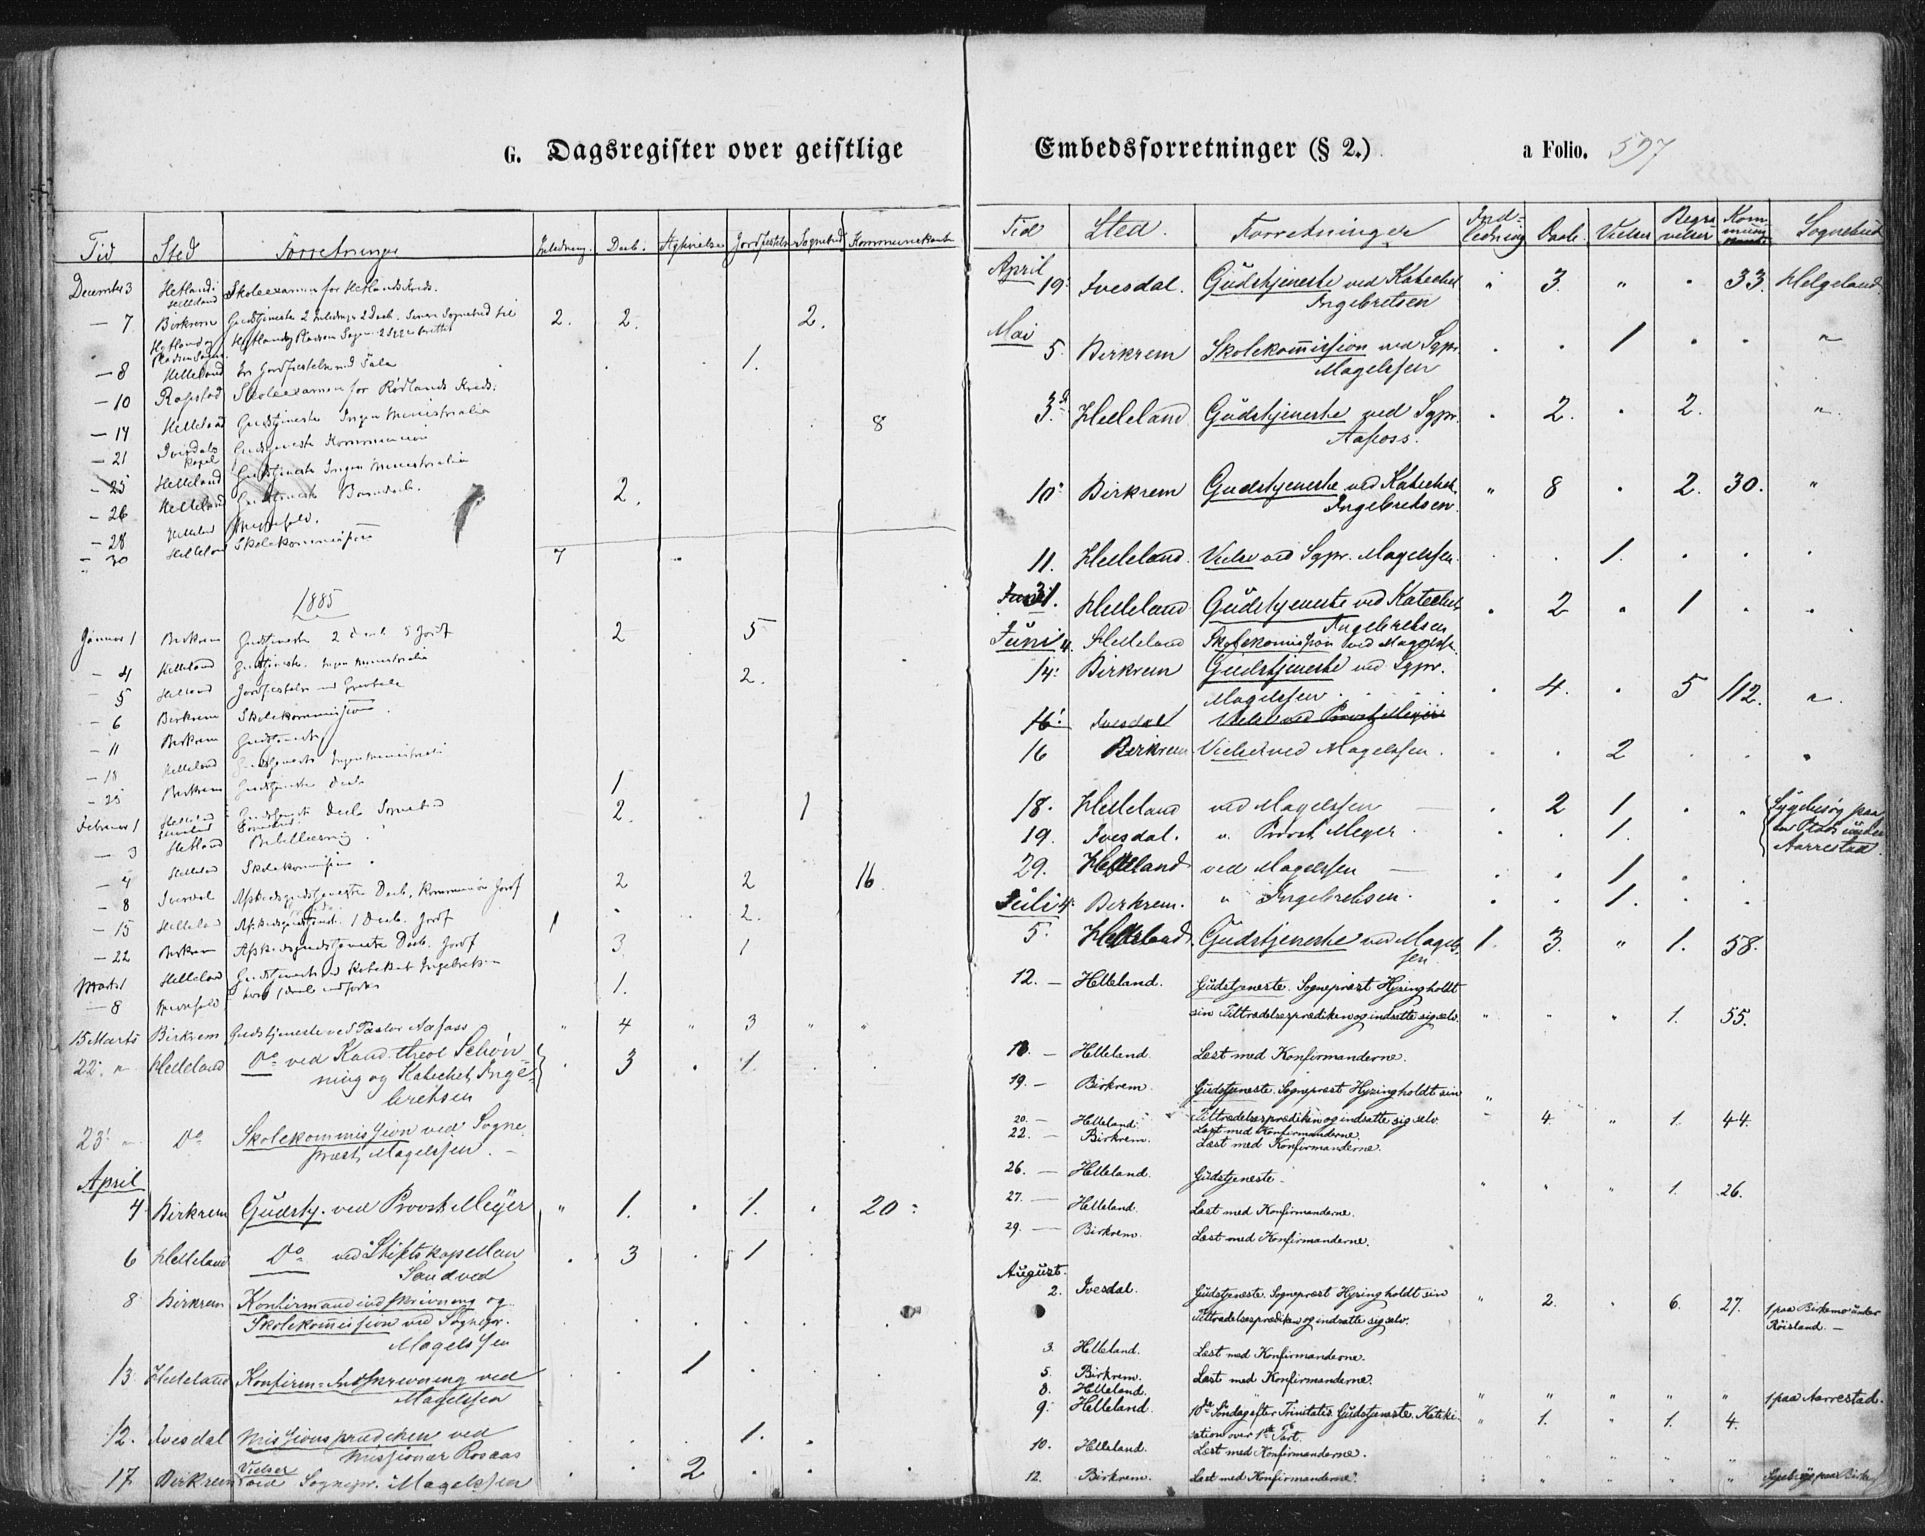 G. Dagsregister over geistlige
Tid Sted Forretninger Inledning. Daab. Ægtevielse Jordfæstelse Sognebud Kommunikanter
December 3 Hetland i Helleland Skoleexamen for Hetlands Kreds.
— 7 Birkrem Gudstjeneste 2 Inledninger 2 Daab. Sognebud til 2. 2. 2.
Hetland og
— 8 Helleland Jordfæstelse med Tale 1.
— 10 Rapstad Skoleexamen for Rødlands Kreds.
— 14 Helleland Gudstjeneste Ingen Ministerialia
— 21 Ivesdals Kapel Gudstjeneste Kommunion 8
— 25 Helleland Gudstjeneste Ingen Ministerialia
— 26 Helleland Gudstjeneste Barnedaab. 2.
— 28 Helleland Messefald.
— 30 Helleland Skolekommission 7
1885
Januar 1 Birkrem Gudstjeneste 2 Daab 5 Jordf 2 5
— 4 Helleland Gudstjeneste. Ingen Ministerialia
— 5 Helleland Jordfæstelse med Gravtale 2.
— 6 Birkrem Skolekommission.
— 11 Birkrem Gudstjeneste
— 18 Helleland Gudstjeneste Ingen Ministeriali
— 25 Birkrem Gudstjeneste Daab 1
Februar 1 Helleland Gudstjeneste Daab Sognebud 2. 1
— 3 Hetland
— 4 Helleland Skolekommission
— 8 Ivesdal Afskedsgudstjeneste Daab, Kommunion Jordf 2 2 16
— 15 Helleland Afskedsgudstjenst. 1 Daab. Jordf 1 2.
— 22 Birkrem Afskedsgudstjeneste Daab. Jordf 3. 1
Marts 1 Helleland Gudstjeneste ved Katekhet Ingebretsen
— 8 Messefald 1.
15 Marts Birkrem Gudstjeneste ved Pastor Aafoss " 4 " 3 " "
22. " Helleland Do ved Kand. theol Schøn- . 3 . 1 . .
ning og Katechet Inge-
bretsen
23. " Do Skolekommission ved Sogne-
præst Magelssen. —
April
4 Birkrem Gudstj. ved Provst Meyer " 1. . 1. . 20.
6 Helleland Do ved Stiftskapellan . 3 . 1 .
Sandved
8 Birkrem Konfirmandindskrivning og
Skolekommission ved Sognepr.
Magelssen
13 Helleland Konfirm-Indskrivning ved . . 1
Magelssen
12. Ivesdal Missionsprædiken ved . . . 1. .
Missionær Rosaas
17 Birkrem Vielser ved Sognepr. Magelssen . . 2 . . .
Embedsforretninger (§ 2.) a Folio. 597
Tid Sted. Forretninger Ind-ledning Daab. Vielser Begravelser Kommunikanter Sognebud
April
19. Ivesdal. Gudstjeneste ved Katechet " 3. " . 33. Helgeland.
Ingebretsen
Mai
5. Birkrem Skolekommission ved Sgpr. . . 1 . . "
Magelssen
3. Helleland Gudstjeneste ved Sgpr. . 2. . 2. "
Aafoss.
10. Birkrem Gudstjeneste ved Katechet " 8 . 2. 30. "
Ingebretsen.
11. Helleland. Vielse ved Sgpr. Magelssen. . . 1. . . .
31. Helleland Gudstjeneste ved Katechet . 2 " 1 . .
Ingebretsen
Juni 4. Helleland Skolekommission ved Magelssen.
14. Birkrem Gudstjeneste ved Sgpr.
Magelssen . 4. . 5 112. "
16. Ivesdal Vielse ved Provst Meyer
16 Birkrem Vielser ved Magelssen. . . 2 . . .
18. Helleland ved Magelssen — . 2 1. . . Sygebesøg paa
19. Ivesdal. v. Provst Meyer . . . 1. . . en Plads under
29. Helleland ved Magelssen — . . 1 . . Aarrestad.
Juli 4. Birkrem. " Ingebretsen. . . 1. . .
5. Helleland. Gudstjeneste ved Magels- 1. 3. " 1. 58.
sen
12. — Helleland. Gudstjeneste. Sogneprest Hyring holdt
sin Tiltrædelsesprædiken og indsatte sig selv. " " " 1. 55.
13. — Helleland. Læst med Konfirmanderne.
19. — Birkrem. Gudstjeneste. Sogneprest Hyring holdt sin "
Tiltrædelsesprædiken og indsatte sig selv. 4. " 1. 44.
20. — Helleland. Læst med Konfirmanderne.
22. — Birkrem. Læst med Konfirmanderne.
26. — Helleland. Gudstjeneste. " " " 1. 26.
27. — Helleland. Læst med Konfirmanderne.
29. — Birkrem. Læst med Konfirmanderne.
August.
2. Ivesdal. Gudstjeneste. Sogneprest Hyring holdt sin " 2. " 6. 27. 1 paa Birkemo under
Tiltrædelsesprædiken og indsatte sig selv. Röisland. —
3. Helleland. Læst med Konfirmanderne.
5. Birkrem. Læst med Konfirmanderne.
8. Helleland. " " " " " 1 paa Aarrestad.
9. Helleland. 10de Söndag efter Trinitatis Gudstjeneste. Kateki- " 1. " 1. 4.
sation over 1ste Part.
10. Helleland. Læst med Konfirmanderne.
12. Birkrem. Læst med Konfirmanderne.